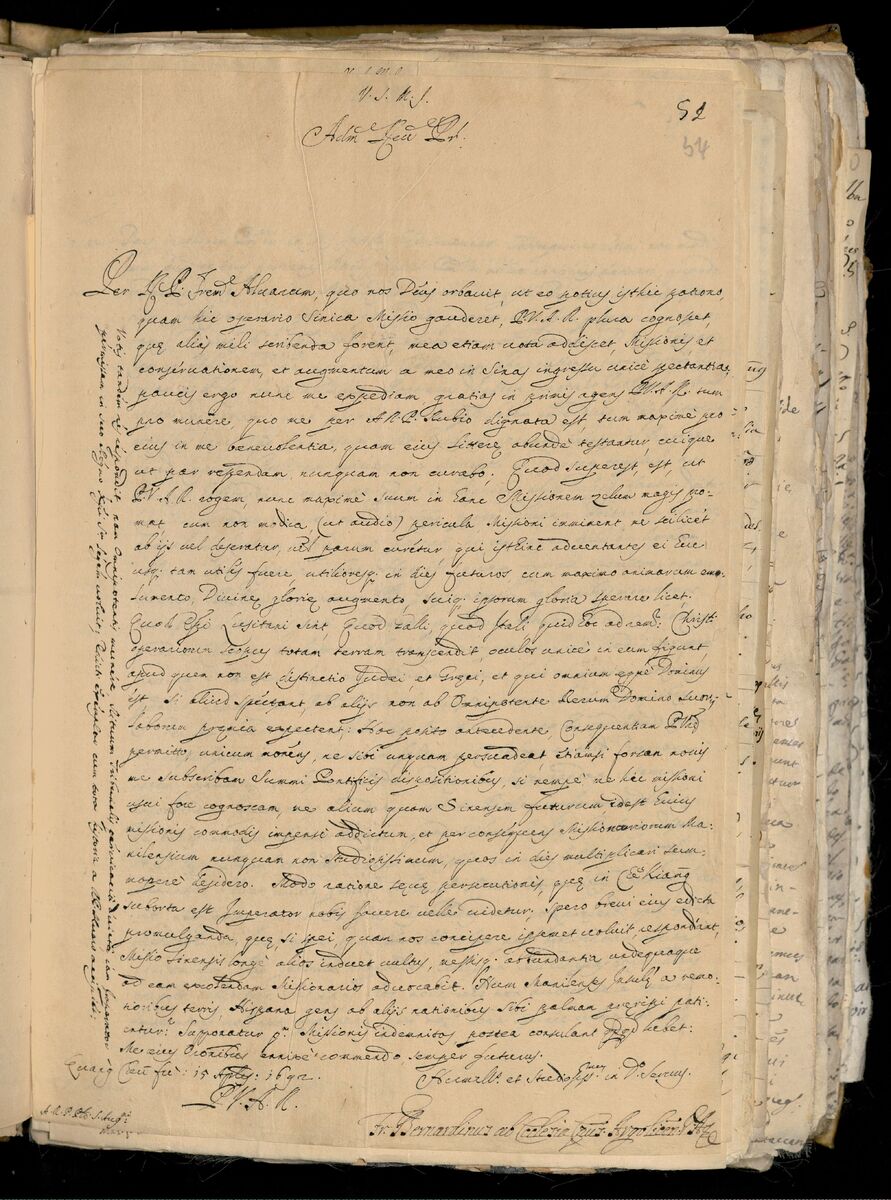 V. J. M. J.
52
54
Adm.e Reu.e Pr.
Per R. P. Aluarum, quo nos Deus orbauit, ut eo potius isthic patrono,
quam hic operario Sinica Missio gauderet, P.V.A.R. plura cognoscet,
quę alias mihi scribenda forent, mea etiam uota addiscet, Missionis et
conseruationem, et augmentum a meo in Sinas ingressu unicè spectantia,
paucis ergo nunc me expediam, gratias in primis agens P.V.A.R. tum
pro munere, quo me per A.R.P. Rubio dignata est, tum maximè pro
eius in me beneuolentia, quam eius litterę abundè testantur, cuique
ut par respondam nunquam non curabo. Quod superest, est, ut
P.V.A.R. rogem, nunc maximè suum in hanc Missionem zelum magis pro-
mat, cum non modica (ut audio) pericula Missioni immineant, ne scilicet
ab ijs uel deseratur, uel parum curetur, qui isthinc aduentantes ei huc
usq; tam utiles fuere, utilioresq; in dies futuros cum maximo animarum emo-
lumento, Diuinę glorię augmento, suiq; ipsorum gloria sperare licet.
Lusitani sint, quod Galli, quod Itali quid hoc ad rem? Christi
operariorum scopus totam terram transcendit, oculos unicè in eum figunt,
apud quem non est distinctio Judei, et Gręci, et qui omnium ęque Dominus
est. Si aliud spectant, ab alijs non ab Omnipotente Rerum Domino suorum
laborum pręmia expectent: Hoc posito antecedente, Consequentiam
permitto, unicum monens, ne sibi unquam persuadeat etiamsi forsan nouis
me subscribam Summi Pontificis dispositionibus, si nempè ne hic missioni
usui fore cognoscam, me alium quam Sinensem futurum idest huius
missionis commodis impensè addictum, et per consequens Missionariorum Ma-
nilensium nunquam non studiosissimum, quos in dies multiplicari sum-
mopere desidero. Modo ratione persecutionis, quę in Che Kiang
suborta est Imperator nobis fauere uelle uidetur. Spero breui eius edicta
promulganda, quę, si spei, quam nos concipere ipsemet uoluit respondeant,
Missio Sinensis longè alios induet uultus, messisq; abundantia undequaque
ad eam excolendam Missionarios aduocabit. Num Manilenses Insulę a remo-
tioribus terris Hispana gens ab alijs nationibus sibi palmam pręripi pati-
entur? Supponatur Missionis indemnitas postea consulant
Me eius Orationibus enixè commendo, semper futurus.
Quang Cheu fu: 15 Aprilis 1692.
Humill. et Studiosiss. in D.o Seruus.
P.V.A.R.
Fr. Bernardinus ab Ecclesia
Votis tandem respondit non Omnipotentis